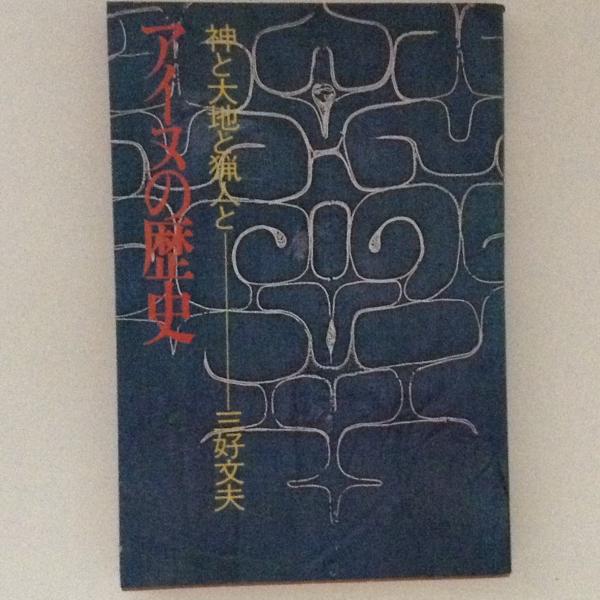 アイヌの歴史
神と大地と猟人と――三好文夫